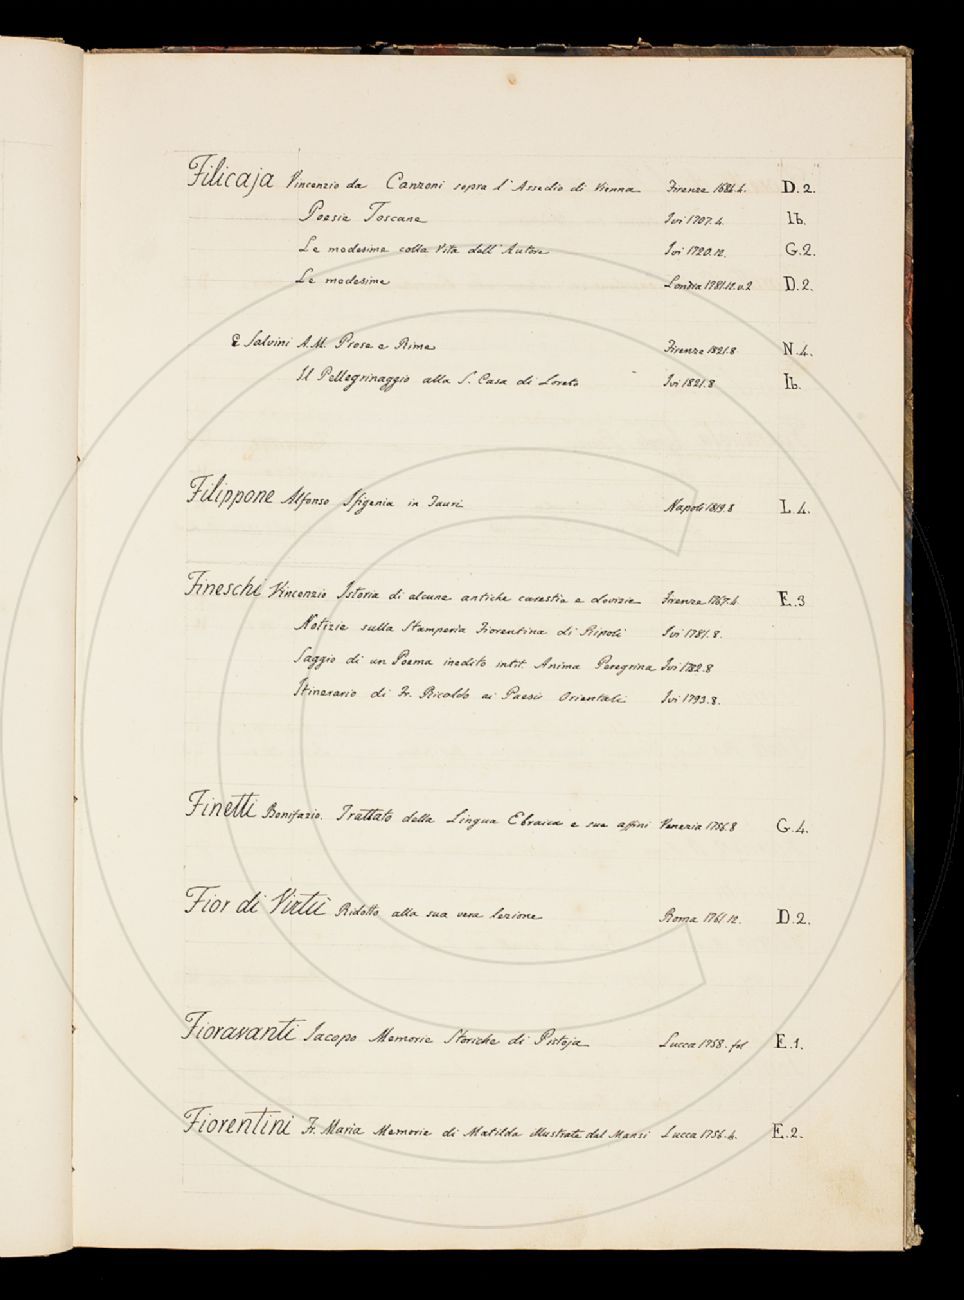 Filicaja Vincenzio da Canzoni sopra l'Assedio di Vienna Firenze 1684.4. D.2.
Poesie Toscane Ivi 1707.4. Ib.
Le medesime colla Vita dell'Autore Ivi 1720.12. G.2.
Le medesime Londra 1781.12.v.2 D.2.
E Salvini A.M. Prose e Rime Firenze 1821.8 N.4.
Il Pellegrinaggio alla S. Casa di Loreto Ivi 1821.8 Ib.
Filippone Alfonso Ifigenia in Tauri Napoli 1819.8 L.4.
Fineschi Vincenzio Istoria di alcune antiche carestie e dovizie Firenze 1767.4. E.3
Notizie sulla Stamperia Fiorentina di Ripoli Ivi 1781.8.
Saggio di un Poema inedito intit. Anima Peregrina Ivi 1782.8
Itinerario di Fr. Ricoldo ai Paesi Orientali Ivi 1793.8.
Finetti Bonifazio. Trattato della Lingua Ebraica e sue affini Venezia 1756.8 G.4.
Fior di Virtù Ridotto alla sua vera lezione Roma 1761.12. D.2.
Fioravanti Jacopo Memorie Storiche di Pistoja Lucca 1758. fol E.1.
Fiorentini Fr. Maria Memorie di Matilda illustrate dal Mansi Lucca 1756.4. E.2.